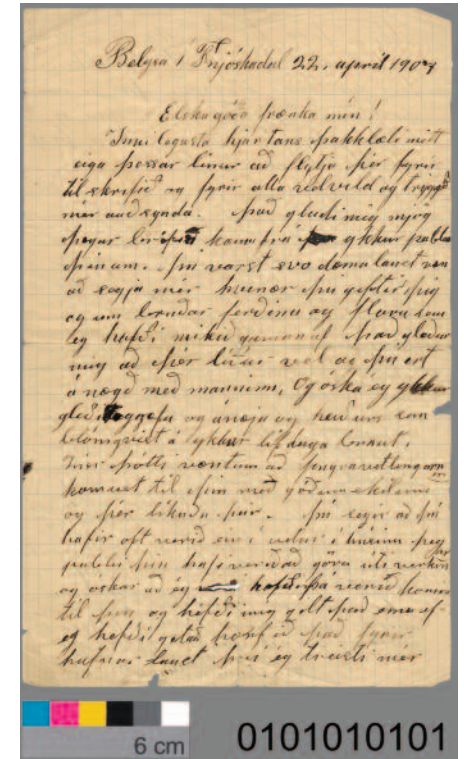 Belgsá í Fnjóskadal 22. apríl 1907
Elsku góða frænka mín!
Innilegasta hjartans þakklæti mitt
eiga þessar línur að flytja þér fyrir
til skrifið og fyrir alla velvild og tryggð
mér auðsynda. það gladdi mig mjög
þegar bréfið kom frá ykkur pabba
þínum. þú varst svo dæmalaust væn
að segja mér hvenær þú giftir þig
og um brúðar ferðina og fleira sem
eg hafði mikið gaman af það gleður
mig að þér líður vel og þú ert
ánægð með manninn, Og óska ég ykkur
gleði og gæfu og ánæja og heiðurs
blómgvist á ykkar lífdaga braut.
þótti væntum að
komust til þín með góðum skilum
og þér líkuðu þær. þú segir að þú
hafir oft verið ein í vetur í húsinu þeg
ar
pabbi þinn hafi verið að göra úti verkin
og óskar að ég hefði verið komin
til þín og hefði mig gilt það sama ef
eg hefði getað horf ið það fyrir
laust því ég treisti mér
6 cm
0101010101